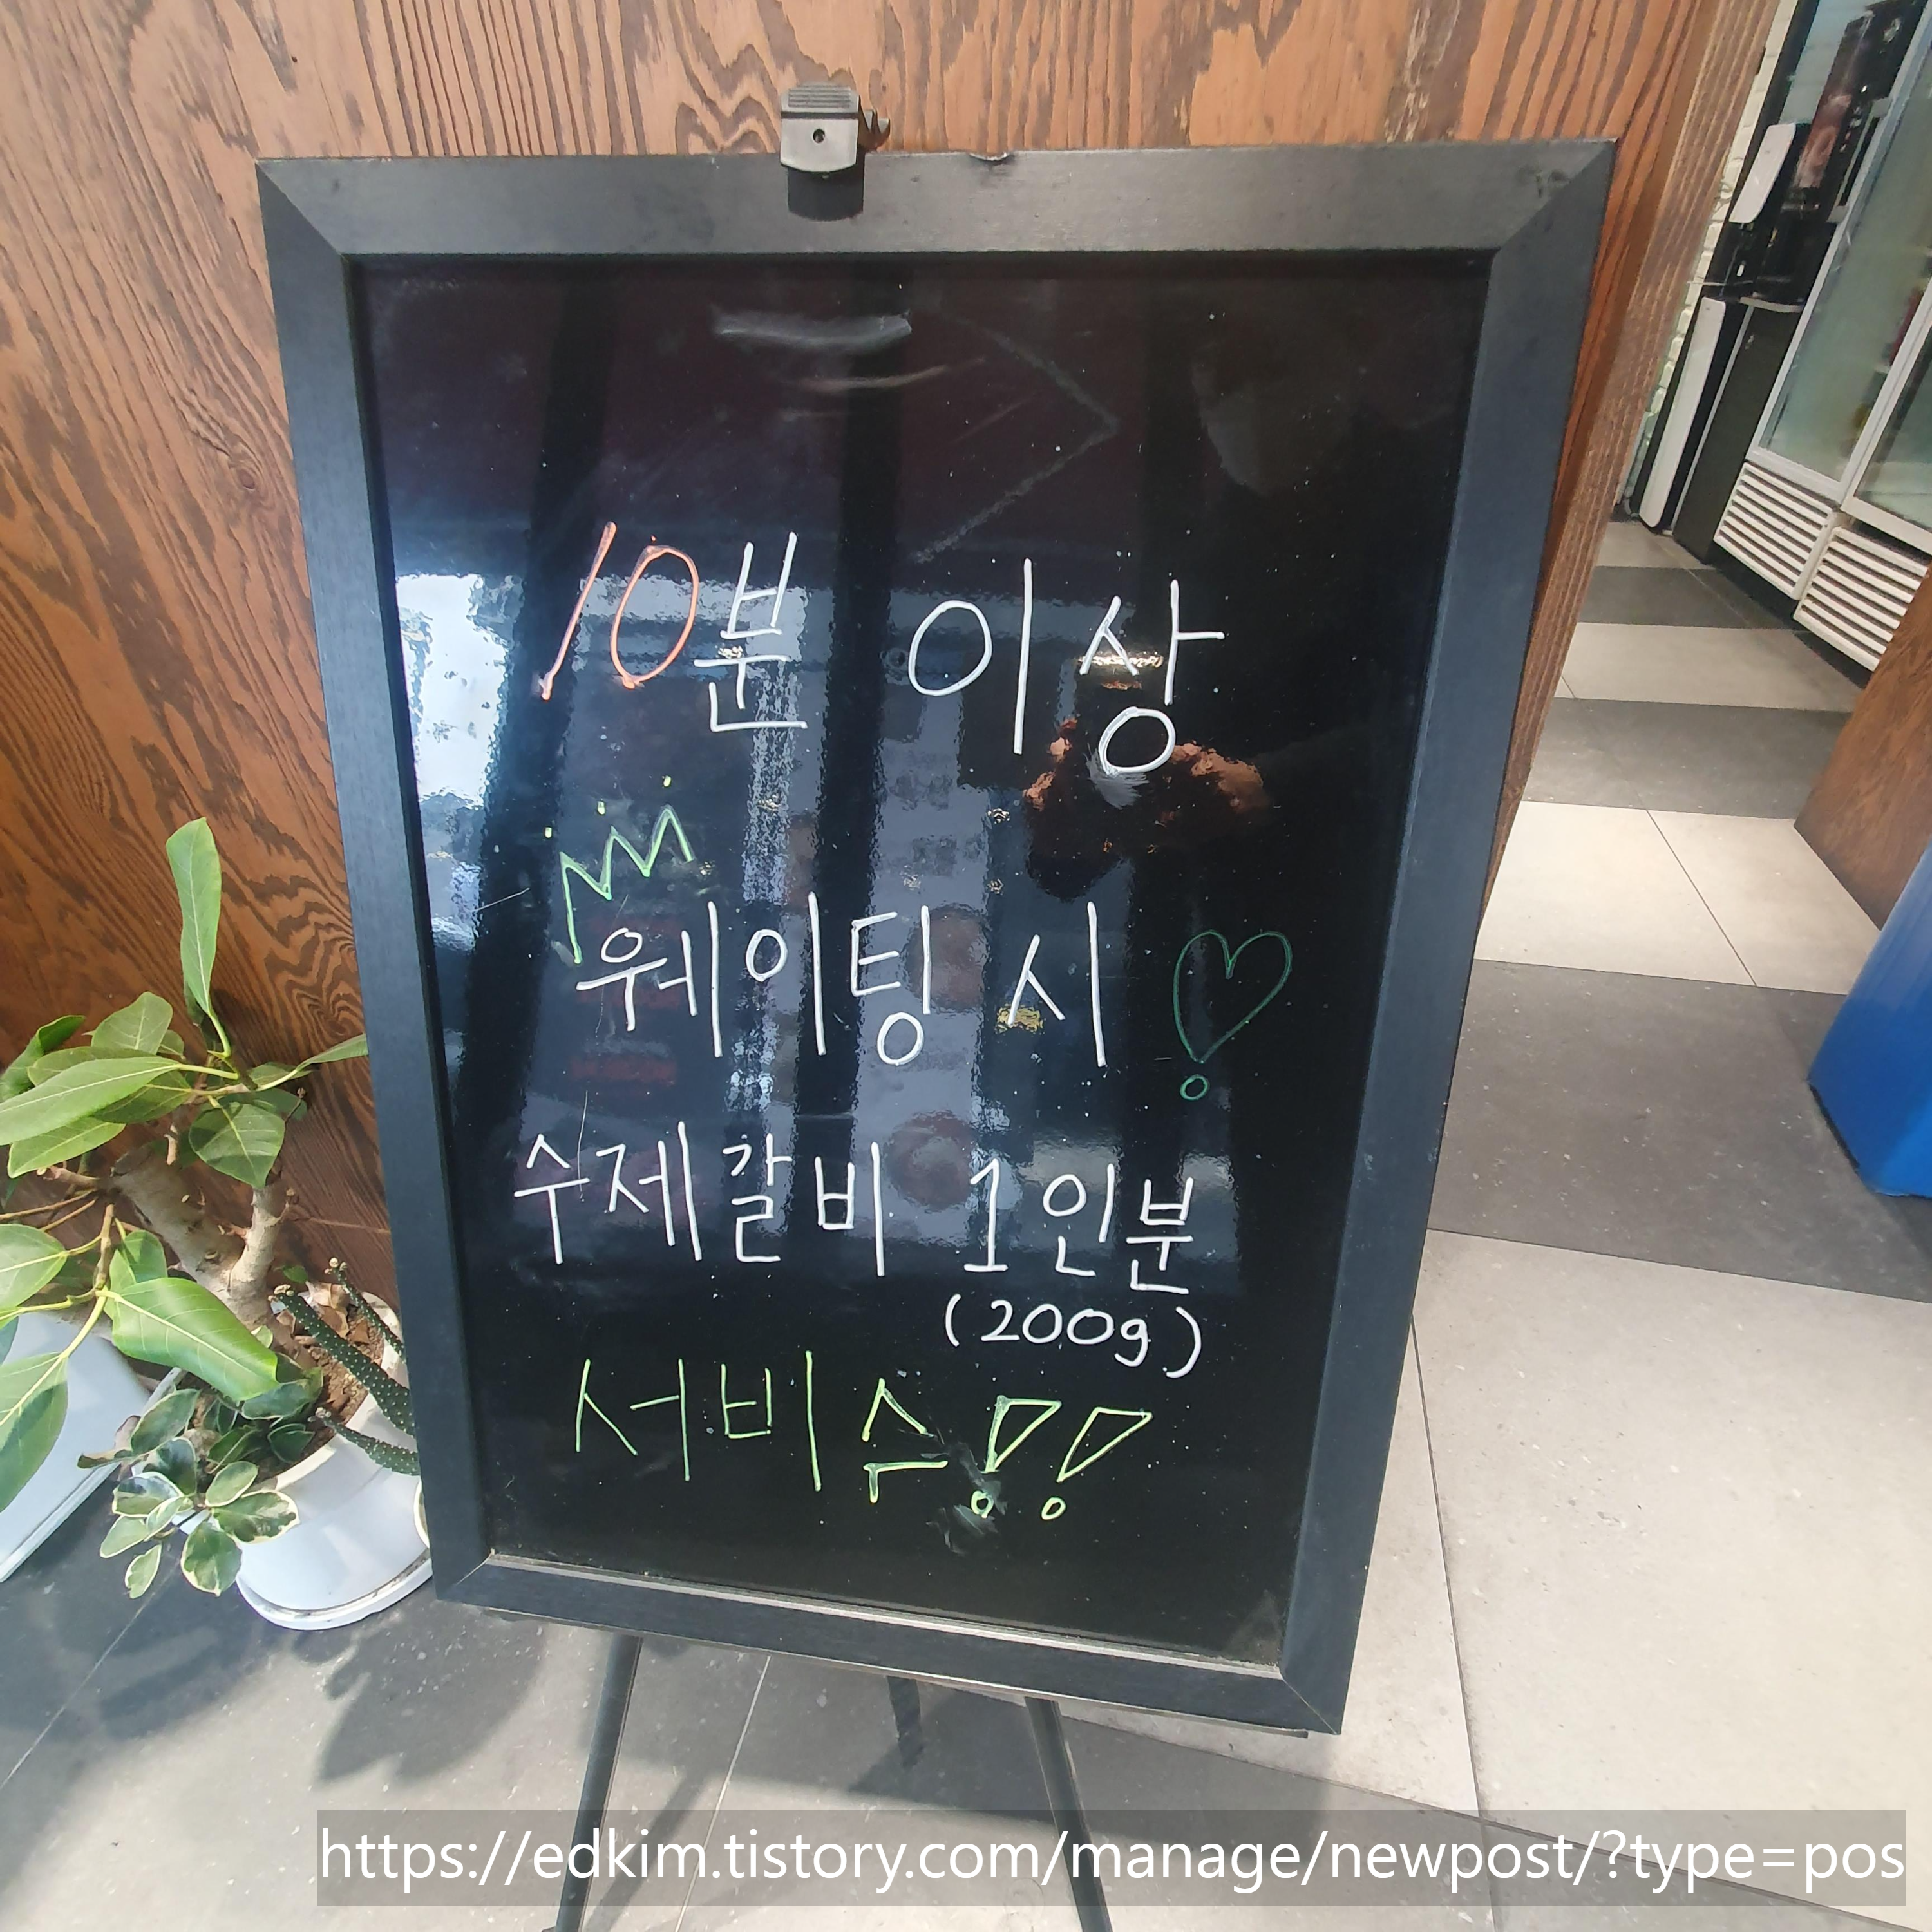 10분 이상
웨이팅 시
수제갈비 1인분
(200g)
서비수!!
https://edkim.tistory.com/manage/newpost/?type=pos